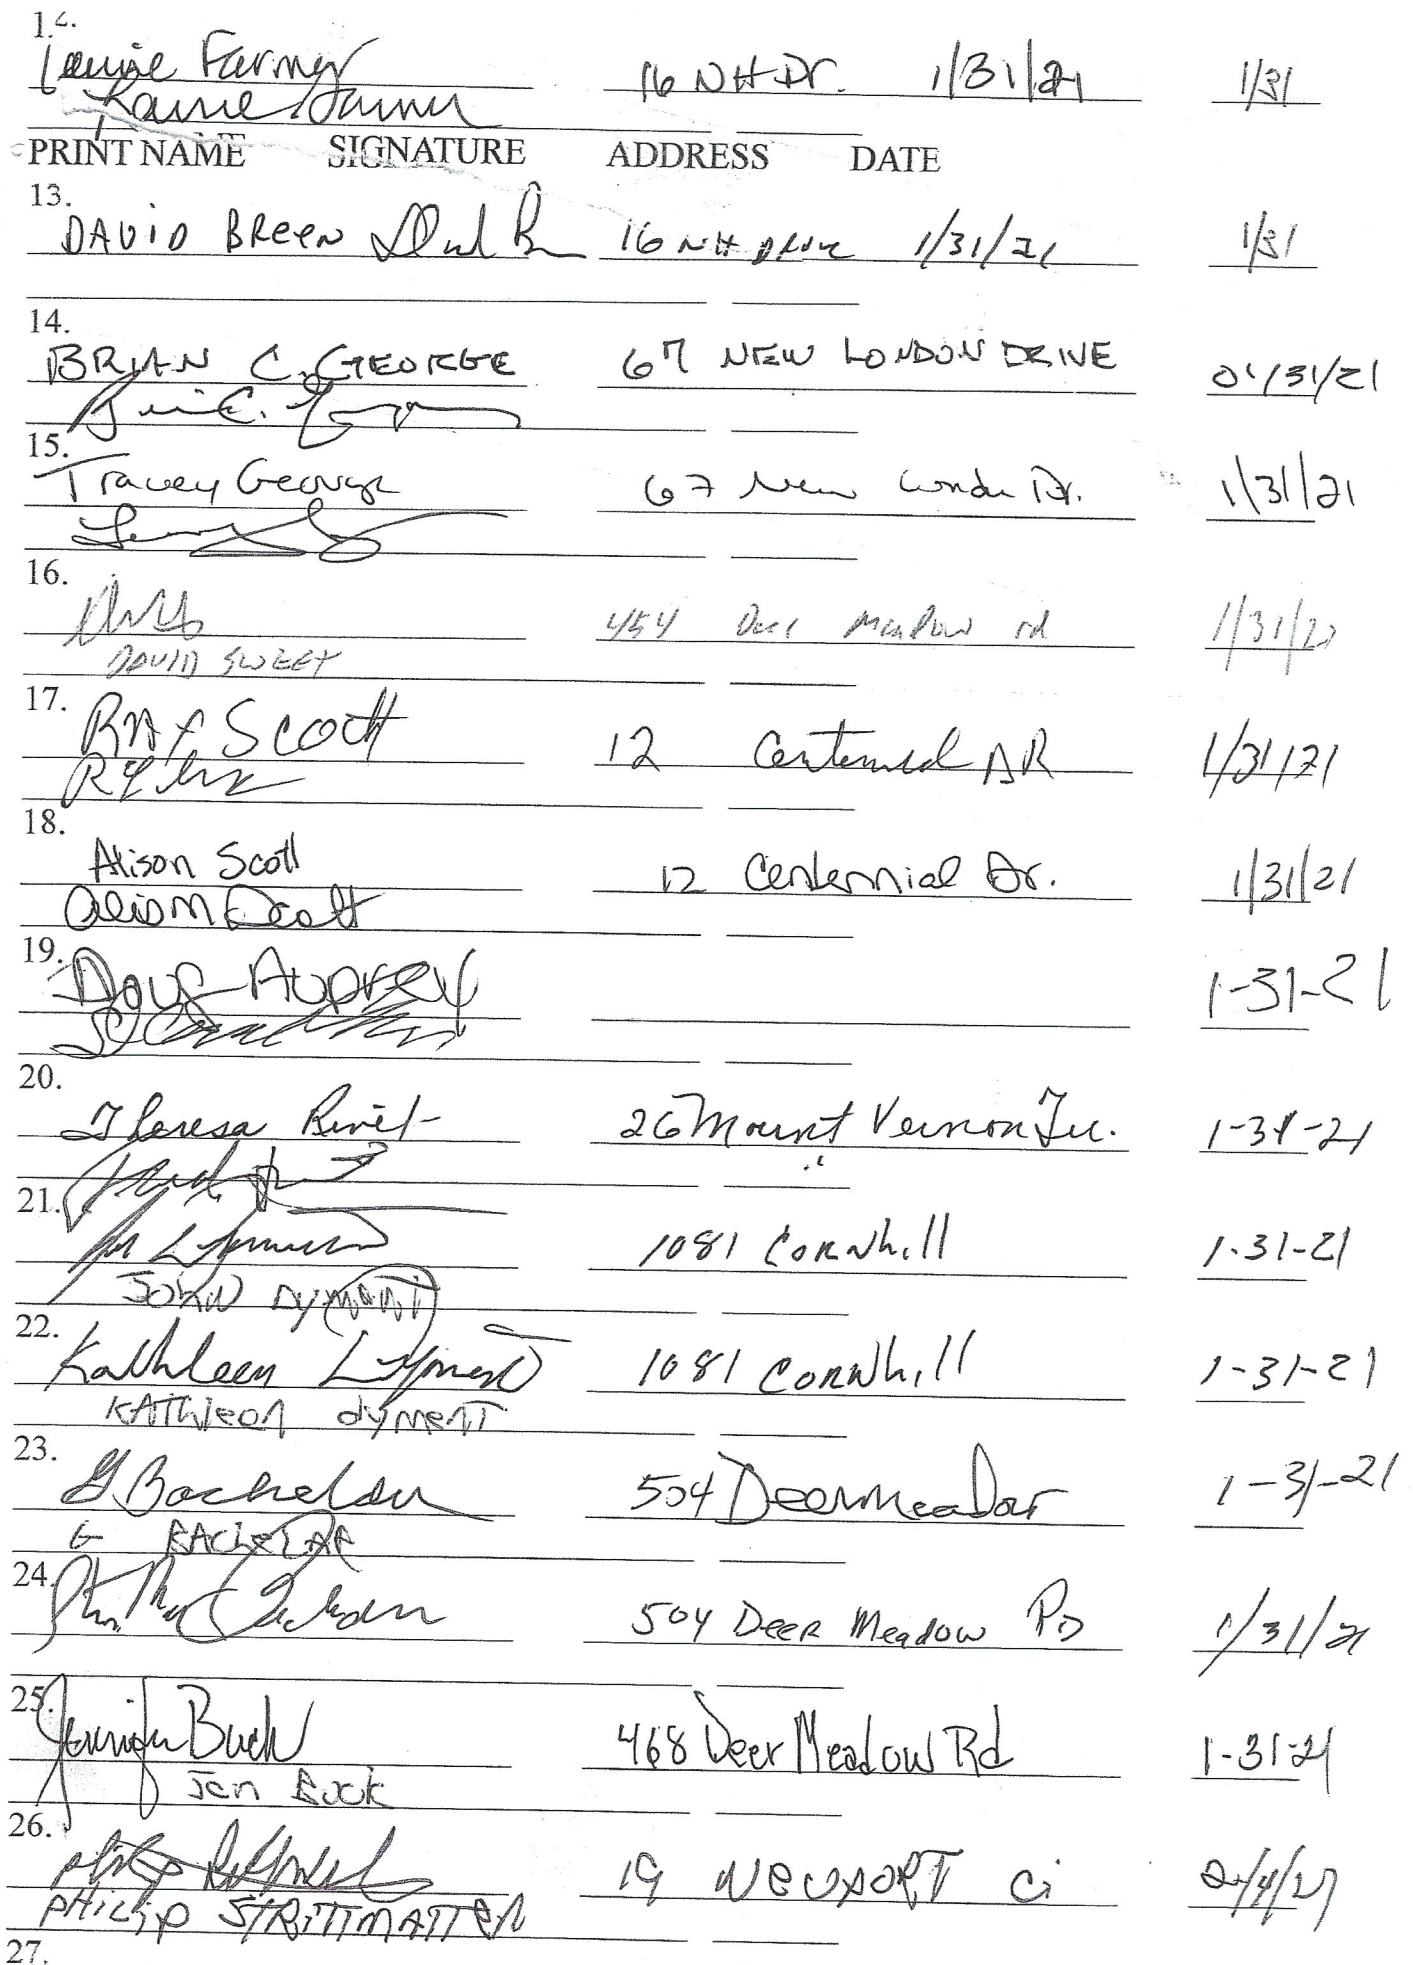 Farmer 16 NH Dr. 1/31/21 1/31
PRINT NAME SIGNATURE ADDRESS DATE
13.
DAVID BREEN 16 NH DRIVE 1/31/21 1/31
14.
BRIAN C. GEORGE 67 NEW LONDON DRIVE 01/31/21
15.
Tracey George 67 New London Dr. 1/31/21
16.
454 Deer Meadow rd 1/31/21
DAVID SWEET
17.
RAY SCOtt 12 Centennial DR 1/31/21
18.
Alison Scott 12 Centennial Dr. 1/31/21
Alison Scott
19.
Doug Auprey 1-31-21
20.
Theresa Rivet 26 Mount Vernon Ter. 1-31-21
21.
1081 CORNhill 1-31-21
JOHN DYMENT
22.
Kathleen Dyment 1081 CORNhill 1-31-21
KATHleen dyment
23.
G Bachelder 504 Deermeadow 1-31-21
24.
504 Deer Meadow RD 1/31/21
25.
Jennifer Buck 468 Deer Meadow Rd 1-31-21
Jen Buck
26.
Philip 19 NEWPORT Ci 2/4/21
PHILIP STRITTMATTER
27.